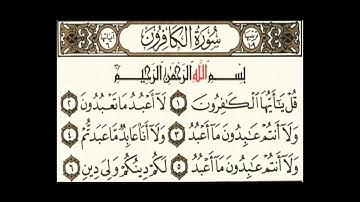 سُورَةُ الْكَافِرُونَ
بِسْمِ ٱللَّهِ ٱلرَّحْمَٰنِ ٱلرَّحِيمِ
قُلْ يَٰٓأَيُّهَا ٱلْكَٰفِرُونَ ١ لَآ أَعْبُدُ مَا تَعْبُدُونَ ٢
وَلَآ أَنتُمْ عَٰبِدُونَ مَآ أَعْبُدُ ٣ وَلَآ أَنَا۠ عَابِدٌ مَّا عَبَدتُّمْ ٤
وَلَآ أَنتُمْ عَٰبِدُونَ مَآ أَعْبُدُ ٥ لَكُمْ دِينُكُمْ وَلِىَ دِينِ ٦